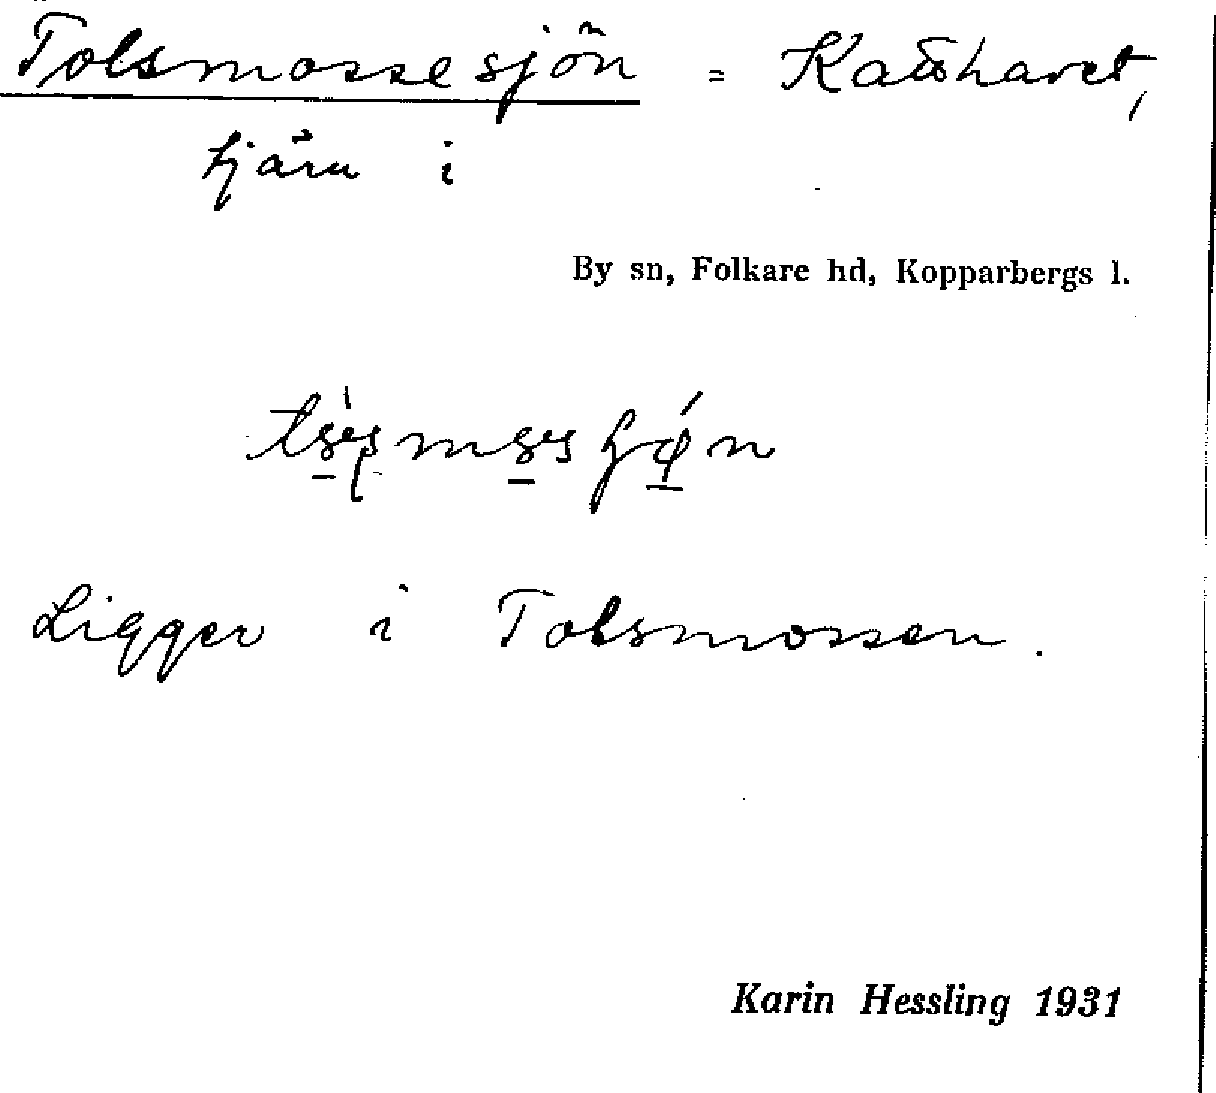 Tolsmossesjön =
tjärn i
By sn, Folkare hd, Kopparbergs l.
Ligger i Tolsmossen.
Karin Hessling 1931